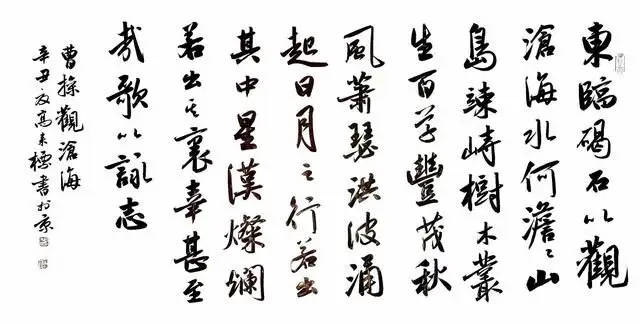 東臨碣石以觀
滄海水何澹〻山
島竦峙樹木叢
生百草豐茂秋
風蕭瑟洪波涌
起日月之行若出
其中星漢燦爛
若出其裏幸甚至
哉歌以詠志
曹操觀滄海
辛丑夏高標書於京